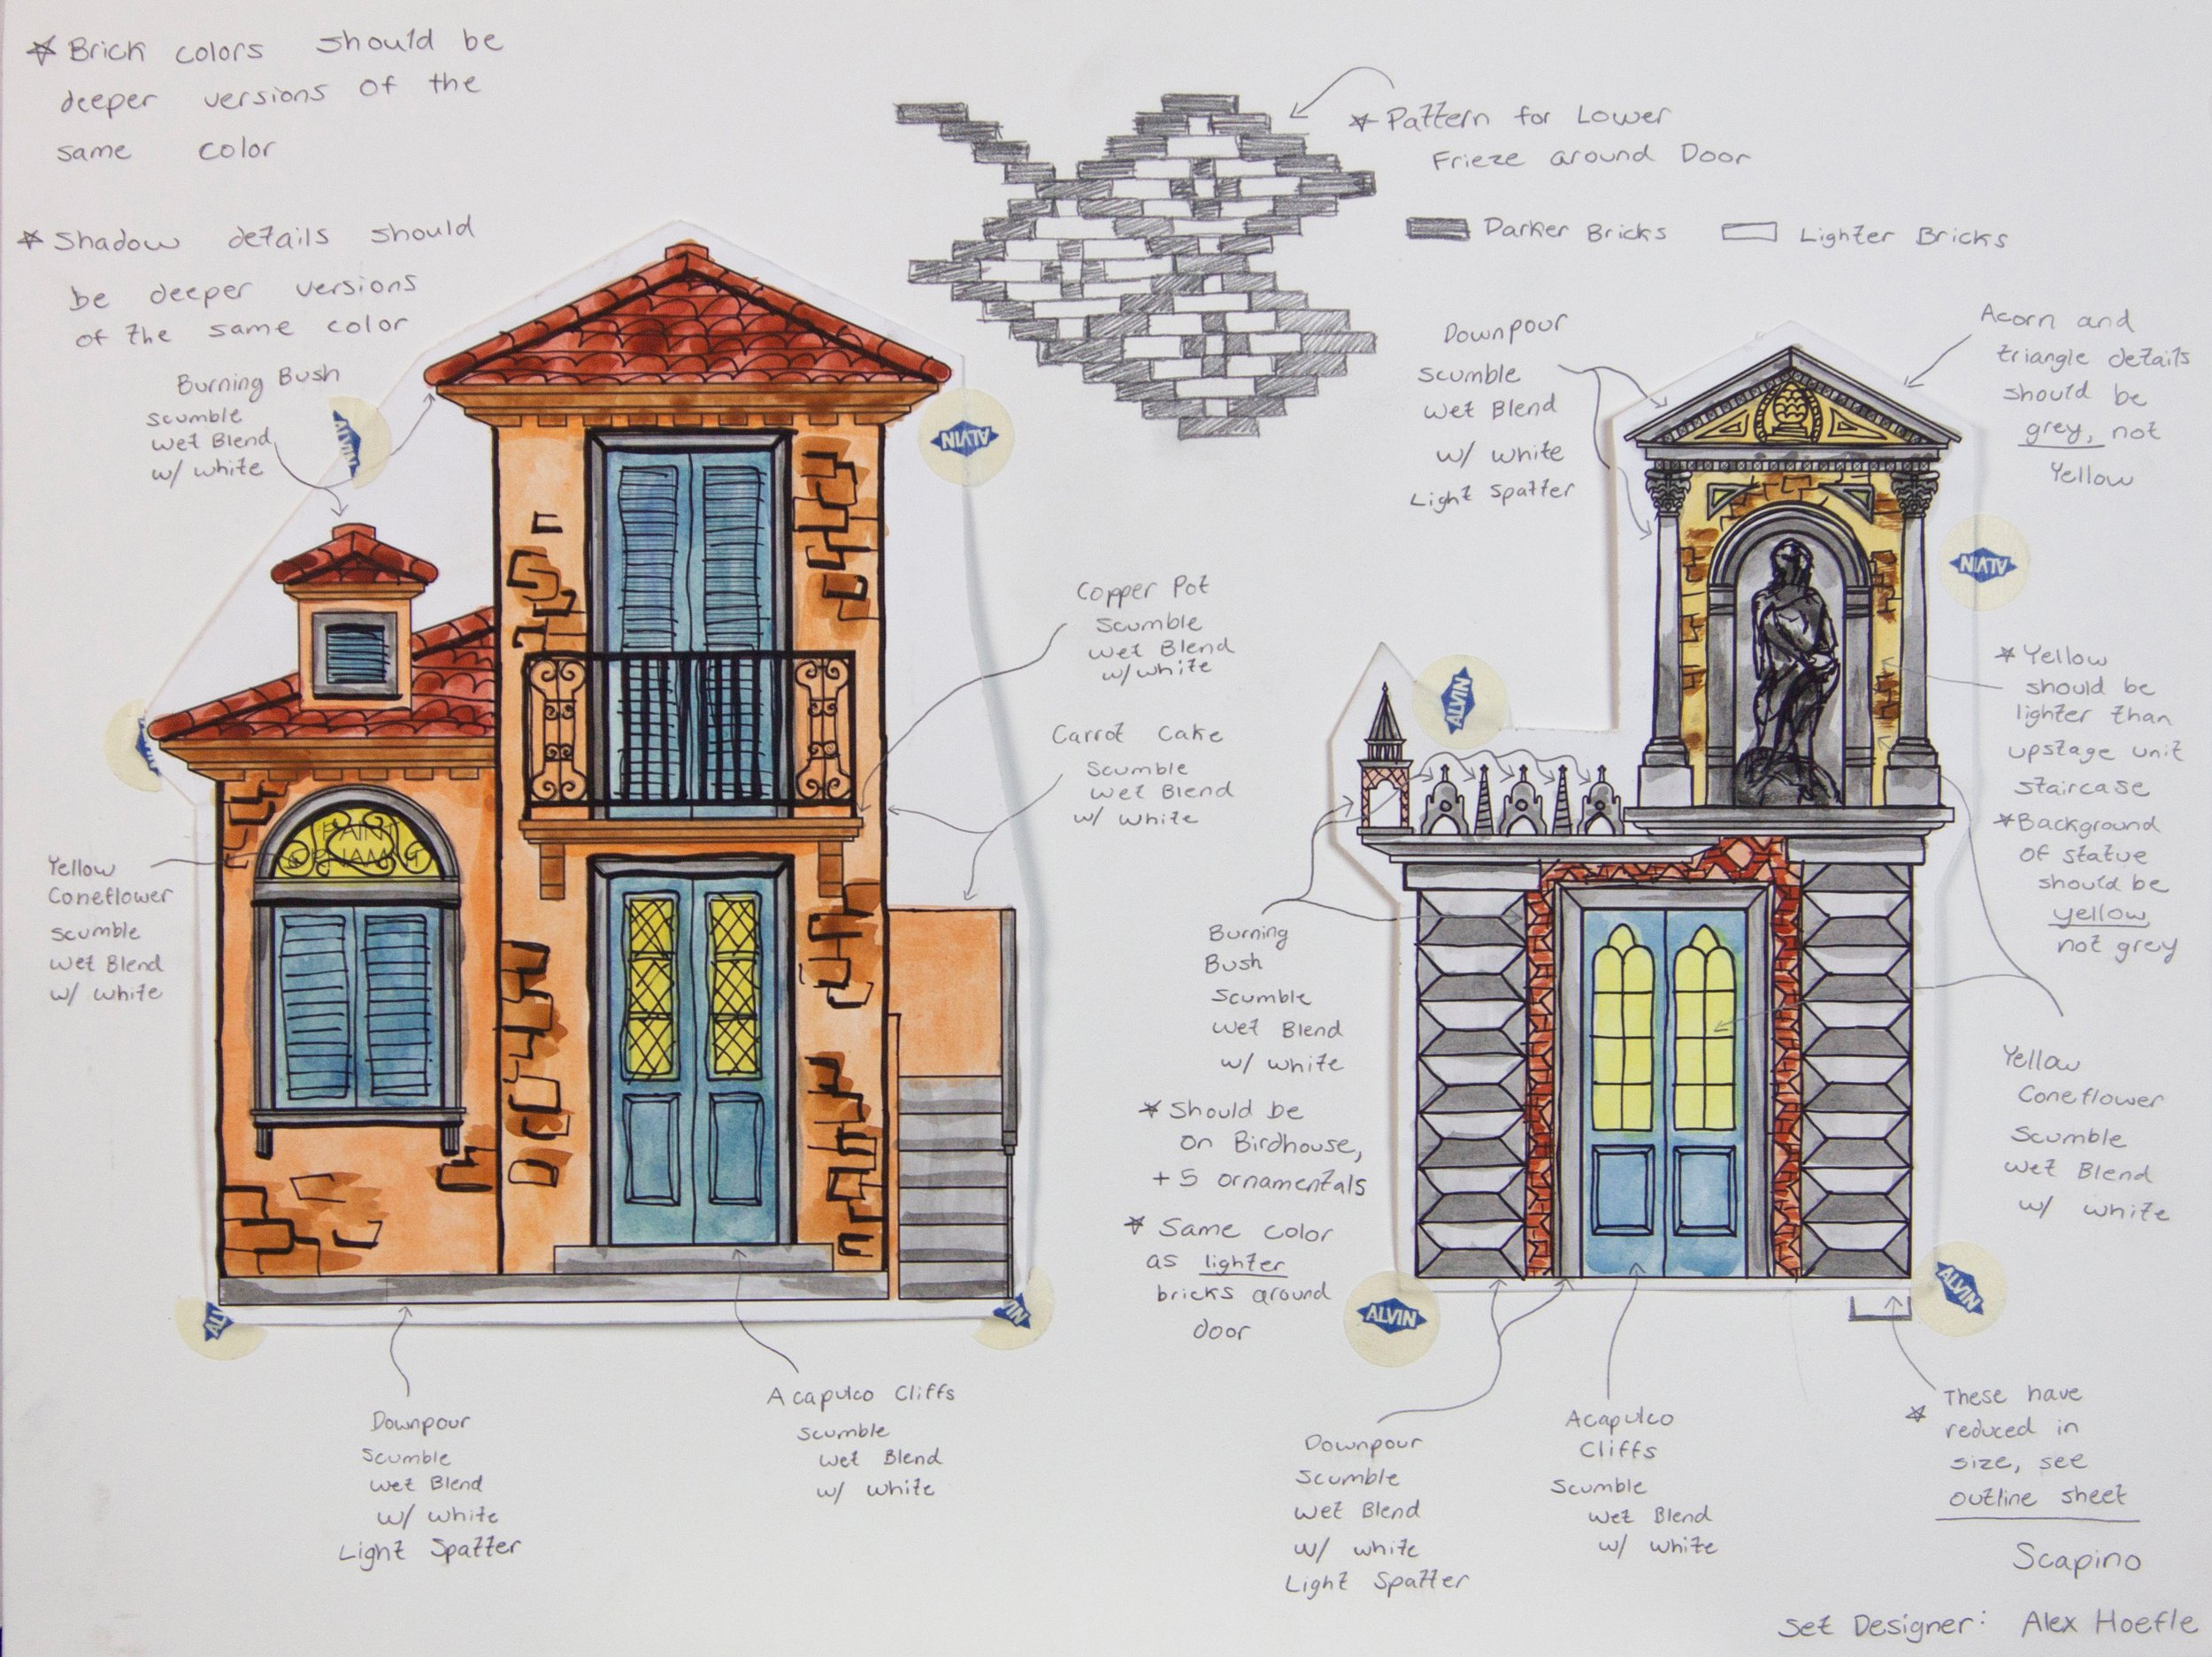 ☆ Brick colors should be
deeper versions of the
same color
☆ Shadow details should
be deeper versions
of the same color
Burning Bush
scumble
wet Blend
w/ white
☆ Pattern for Lower
Frieze around Door
Darker Bricks
Lighter Bricks
Downpour
scumble
wet Blend
w/ white
Light Spatter
Acorn and
triangle details
should be
grey, not
Yellow
ALVIN
ALVIN
ALVIN
Copper Pot
scumble
wet Blend
w/ white
Carrot Cake
scumble
wet Blend
w/ white
ALVIN
☆ Yellow
should be
lighter than
upstage unit
staircase
☆ Background
of statue
should be
yellow,
not grey
Yellow
Coneflower
scumble
wet Blend
w/ white
PAINT
ORNAMENT
Burning
Bush
scumble
wet Blend
w/ white
☆ Should be
on Birdhouse,
+ 5 ornamentals
☆ Same color
as lighter
bricks around
door
Yellow
Coneflower
scumble
wet Blend
w/ white
ALVIN
ALVIN
Downpour
scumble
wet Blend
w/ white
Light Spatter
Acapulco Cliffs
scumble
wet Blend
w/ white
Downpour
scumble
wet Blend
w/ white
Light Spatter
Acapulco
Cliffs
scumble
wet Blend
w/ white
☆ These have
reduced in
size, see
outline sheet
Scapino
Set Designer: Alex Hoefle